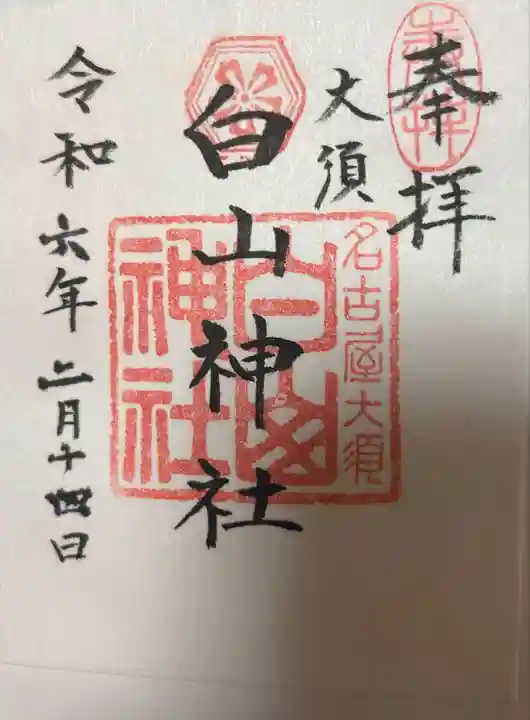 奉拝
奉拝
大須
名古屋大須
白山神社
白山
神社
令和六年二月十四日